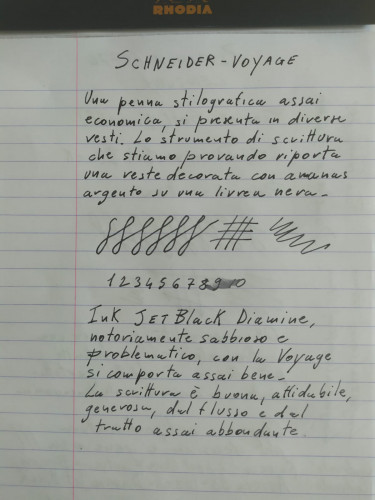 RHODIA
SCHNEIDER-VOYAGE
Una penna stilografica assai
economica, si presenta in diverse
vesti. Lo strumento di scrittura
che stiamo provando riporta
una veste decorata con ananas
argento su una livrea nera.
1 2 3 4 5 6 7 8 9 10
INK JET BLACK Diamine,
notoriamente sabbioso e
problematico, con la Voyage
si comporta assai bene.
La scrittura è buona, affidabile,
generosa, dal flusso e dal
tratto assai abbondante.